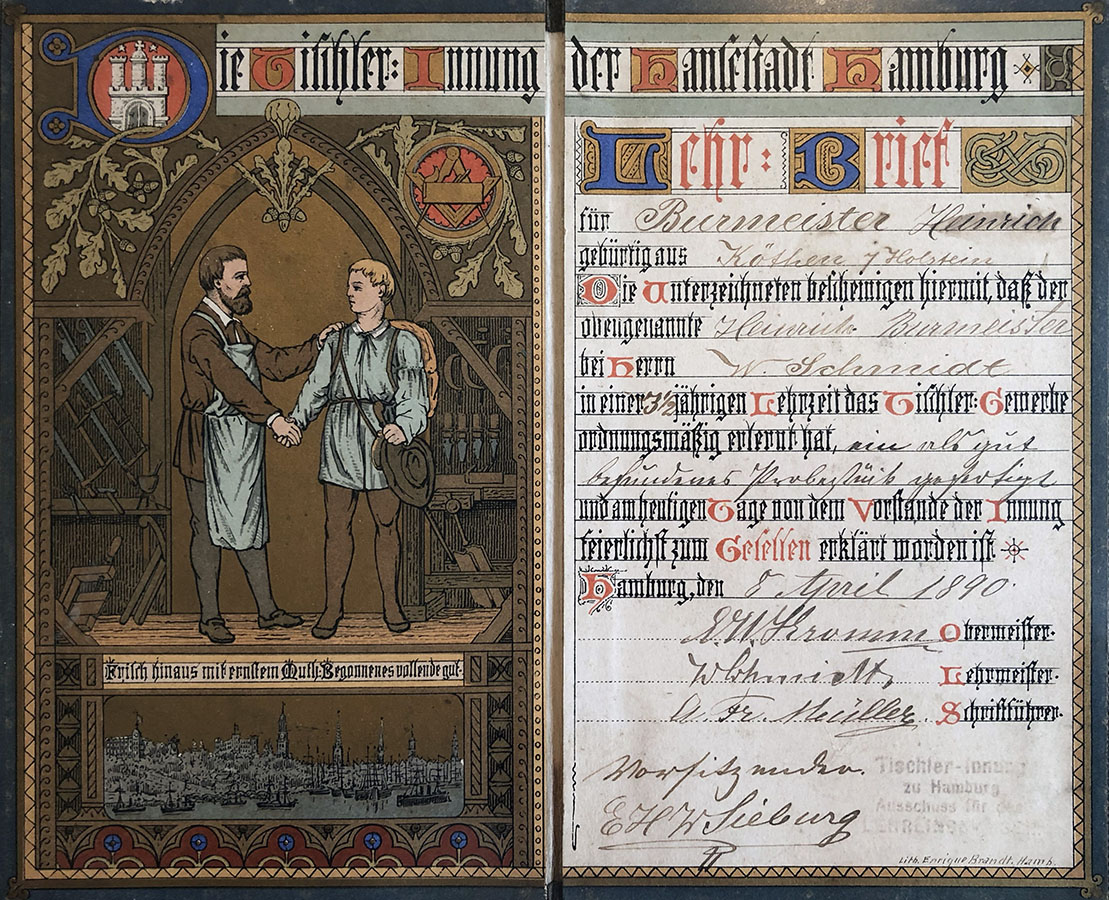 Die Tischler: Innung der Hansestadt Hamburg
Lehr: Brief
für Burmeister Heinrich
gebürtig aus Köthen i/Holstein
Die Unterzeichneten bescheinigen hiermit, daß der
obengenannte Heinrich Burmeister
bei Herrn W. Schmidt
in einer 3½ jährigen Lehrzeit das Tischler: Gewerbe
ordnungsmäßig erlernt hat, ein als gut
befundenes Probestück gefertigt
und am heutigen Tage von dem Vorstande der Innung
feierlichst zum Gesellen erklärt worden ist
Hamburg, den 8 April 1890.
Obermeister.
W Schmidt, Lehrmeister.
A. Fr. Müller. Schriftführer.
Vorsitzender.
E H W Sieburg
Tischler-Innung
zu Hamburg
Ausschuss für
Lith. Enrique Brandt, Hamb.
Frisch hinaus mit ernstem Muth: Begonnenes vollende gut.